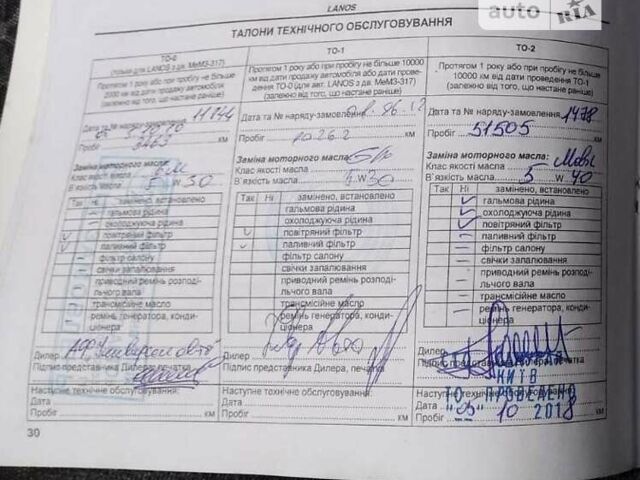 LANOS
auto RIA
ТАЛОНИ ТЕХНІЧНОГО ОБСЛУГОВУВАННЯ
ТО-0
(тільки для LANOS з дв. МеМЗ-317)
Протягом 1 року або при пробігу не більше
2000 км від дати продажу автомобіля
(залежно від того, що настане раніше)
Дата та № наряду-замовлення 11744
Пробіг км
Заміна моторного масла:
Клас якості масла
В'язкість масла 5 W 30
Так Ні замінено, встановлено
гальмова рідина
охолоджуюча рідина
повітряний фільтр
паливний фільтр
фільтр салону
свічки запалювання
приводний ремінь розподі-
льчого вала
трансмісійне масло
ремінь генератора, конди-
ціонера
Дилер
Підпис представника Дилера, печатка
Наступне технічне обслуговування:
Дата
Пробіг км
30
ТО-1
Протягом 1 року або при пробігу не більше 10000
км від дати продажу автомобіля або дати прове-
дення ТО-0 (для авт. LANOS з дв. МеМЗ-317)
(залежно від того, що настане раніше)
Дата та № наряду-замовлення
Пробіг км
Заміна моторного масла:
Клас якості масла
В'язкість масла W 30
Так Ні замінено, встановлено
гальмова рідина
охолоджуюча рідина
повітряний фільтр
паливний фільтр
фільтр салону
свічки запалювання
приводний ремінь розподі-
льчого вала
трансмісійне масло
ремінь генератора, конди-
ціонера
Дилер
Підпис представника Дилера, печатка
Наступне технічне обслуговування:
Дата
Пробіг км
ТО-2
Протягом 1 року або при пробігу не більше
10000 км від дати проведення ТО-1
(залежно від того, що настане раніше)
Дата та № наряду-замовлення 1478
Пробіг 51505 км
Заміна моторного масла:
Клас якості масла
В'язкість масла 5 W 40
Так Ні замінено, встановлено
гальмова рідина
охолоджуюча рідина
повітряний фільтр
паливний фільтр
фільтр салону
свічки запалювання
приводний ремінь розподі-
льчого вала
трансмісійне масло
ремінь генератора, конди-
ціонера
Дилер
Підпис представника Дилера, печатка
КИЇВ
Наступне технічне обслуговування:
ТО ПРОВЕДЕНО
Дата
10 2018
Пробіг км